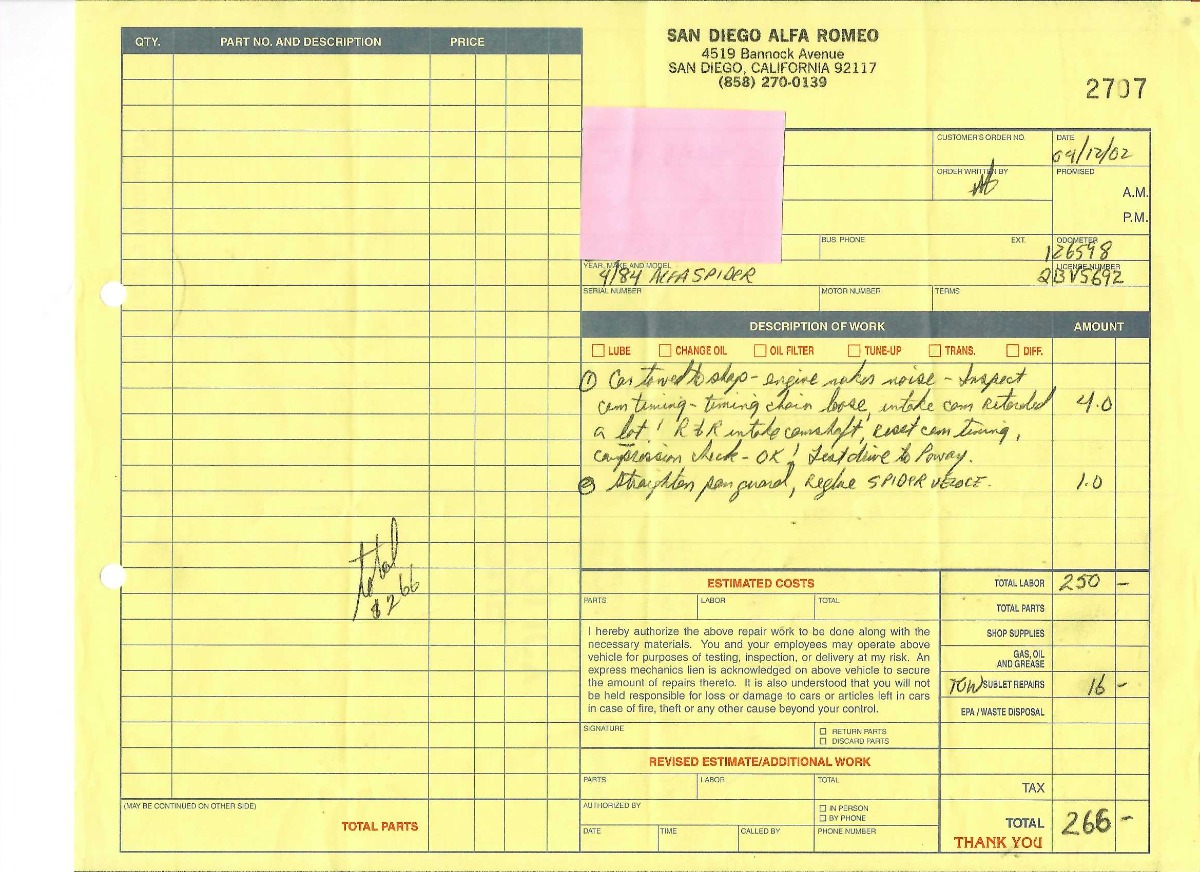 QTY. PART NO. AND DESCRIPTION PRICE
SAN DIEGO ALFA ROMEO
4519 Bannock Avenue
SAN DIEGO, CALIFORNIA 92117
(858) 270-0139
2707
CUSTOMER'S ORDER NO. DATE
09/12/02
ORDER WRITTEN BY PROMISED
A.M.
P.M.
BUS. PHONE EXT. ODOMETER
126598
YEAR, MAKE AND MODEL LICENSE NUMBER
4/84 ALFA SPIDER 2BVS692
SERIAL NUMBER MOTOR NUMBER TERMS
DESCRIPTION OF WORK AMOUNT
LUBE CHANGE OIL OIL FILTER TUNE-UP TRANS. DIFF.
① Car towed to shop - engine makes noise - Inspect
cam timing - timing chain loose, intake cam retarded 4.0
a lot! R & R intake camshaft, reset cam timing,
compression check - OK! Test drive to Poway.
② Straighten pan guard, Reglue SPIDER VELOCE. 1.0
total
$266
ESTIMATED COSTS
PARTS LABOR TOTAL
I hereby authorize the above repair work to be done along with the
necessary materials. You and your employees may operate above
vehicle for purposes of testing, inspection, or delivery at my risk. An
express mechanics lien is acknowledged on above vehicle to secure
the amount of repairs thereto. It is also understood that you will not
be held responsible for loss or damage to cars or articles left in cars
in case of fire, theft or any other cause beyond your control.
SIGNATURE
RETURN PARTS
DISCARD PARTS
REVISED ESTIMATE/ADDITIONAL WORK
PARTS LABOR TOTAL
AUTHORIZED BY
IN PERSON
BY PHONE
DATE TIME CALLED BY PHONE NUMBER
TOTAL LABOR 250 -
TOTAL PARTS
SHOP SUPPLIES
GAS, OIL
AND GREASE
TOW SUBLET REPAIRS 16 -
EPA / WASTE DISPOSAL
TAX
TOTAL 266 -
THANK YOU
(MAY BE CONTINUED ON OTHER SIDE)
TOTAL PARTS